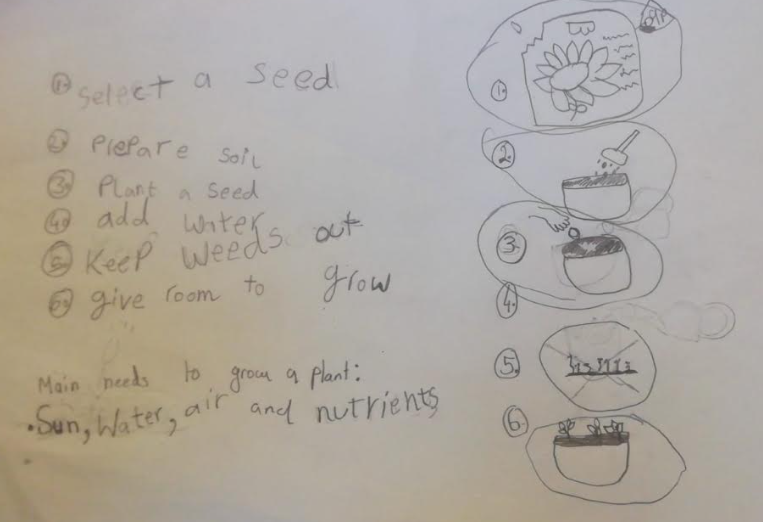 1. Select a seed
2. Prepare soil
3. Plant a seed
4. add water
5. Keep weeds out
6. give room to grow
Main needs to grow a plant:
. Sun, Water, air and nutrients
1.
2.
3.
4.
5.
6.